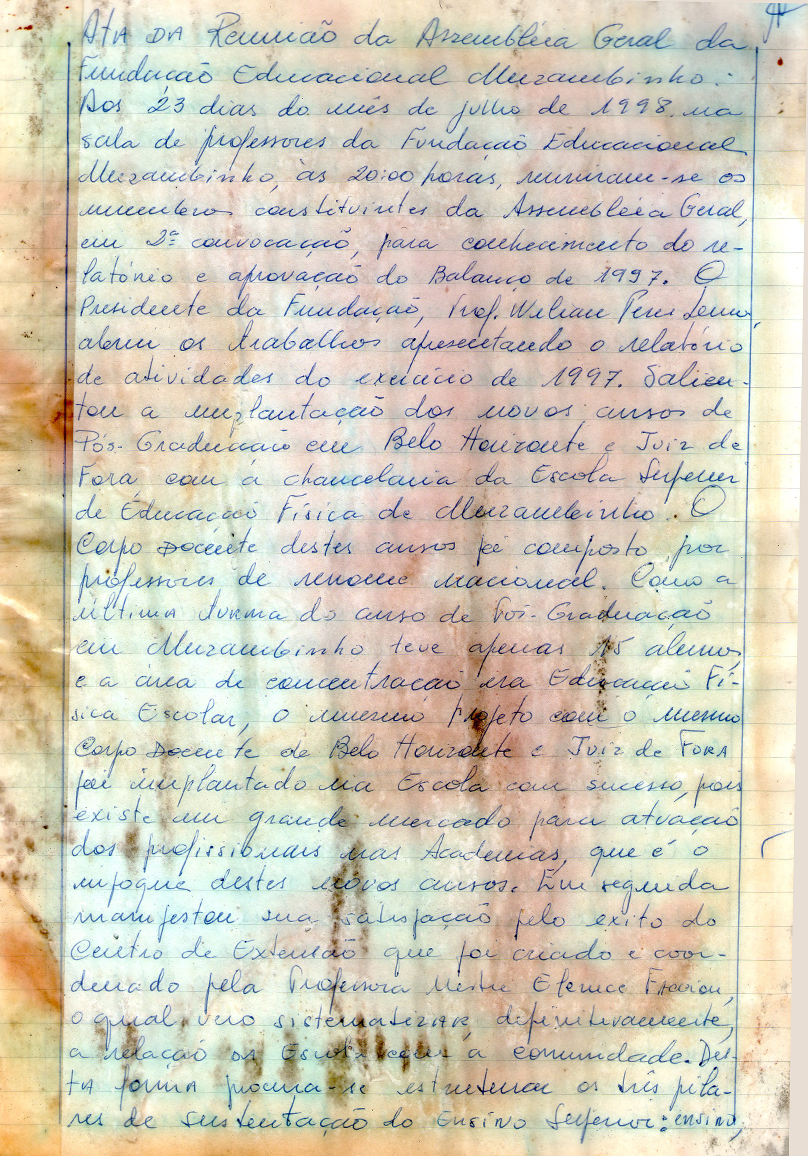 Ata da Reunião da Assembléia Geral da
Fundação Educacional Muzambinho.
Aos 23 dias do mês de julho de 1998, na
sala de professores da Fundação Educacional
Muzambinho, às 20:00 horas, reuniram-se os
membros constituintes da Assembléia Geral,
em 2ª convocação, para conhecimento do re-
latório e aprovação do Balanço de 1997. O
Presidente da Fundação, Prof. Welian Peres Lemos,
abriu os trabalhos apresentando o relatório
de atividades do exercício de 1997. Salien-
tou a implantação dos novos cursos de
Pós-Graduação em Belo Horizonte e Juiz de
Fora com a chancelaria da Escola Superior
de Educação Física de Muzambinho. O
Corpo Docente destes cursos foi composto por
professores de renome nacional. Como a
última turma do curso de Pós-Graduação
em Muzambinho teve apenas 15 alunos,
e a área de concentração era Educação Fí-
sica Escolar, o mesmo projeto com o mesmo
Corpo Docente de Belo Horizonte e Juiz de Fora
foi implantado na Escola com sucesso, pois
existe um grande mercado para atuação
dos profissionais nas Academias, que é o
enfoque destes novos cursos. Em seguida
manifestou sua satisfação pelo exito do
Centro de Extensão que foi criado e coor-
denado pela Professora Mestre Elenice
o qual veio sistematizar, definitivamente,
a relação da Escola com a comunidade. Des-
ta forma procura-se estruturar os três pila-
res de sustentação do Ensino Superior: ensino,